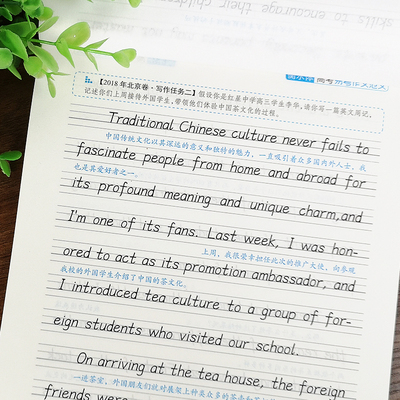 【2018年北京卷·写作任务二】假设你是红星中学高三学生李华,请你写一篇英文周记,
记述你们上周接待外国学生,带领他们体验中国茶文化的过程。
Traditional Chinese culture never fails to
中国传统文化以其深远的意义和独特的魅力,一直吸引着众多国内外人士,我
fascinate people from home and abroad for
也是其爱好者之一。
its profound meaning and unique charm,and
I'm one of its fans. Last week, I was hon-
上周,我很荣幸担任此次的推广大使,向参观
ored to act as its promotion ambassador, and
我校的外国学生介绍了中国的茶文化。
I introduced tea culture to a group of for-
eign students who visited our school.
On arriving at the tea house, the foreign
一进茶室,外国朋友们就对展架上种类众多的茶壶和
friends were